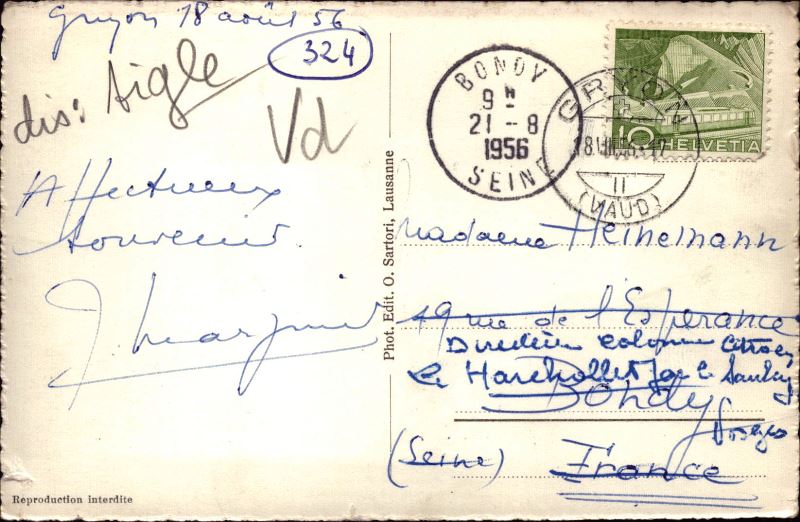 Gryon 18 août 56
324
dis: Aigle
Vd
Affectueux
souvenir.
Reproduction interdite
Phot. Edit. O. Sartori, Lausanne
BONDY
9 H
21 - 8
1956
SEINE
GRYON
18.VIII.56.-17
11
(VAUD)
10
HELVETIA
Madame Heinemann
49 rue de l'Espérance
Directrice colonie Citroën
Le
Bondy
Vosges
(Seine) France